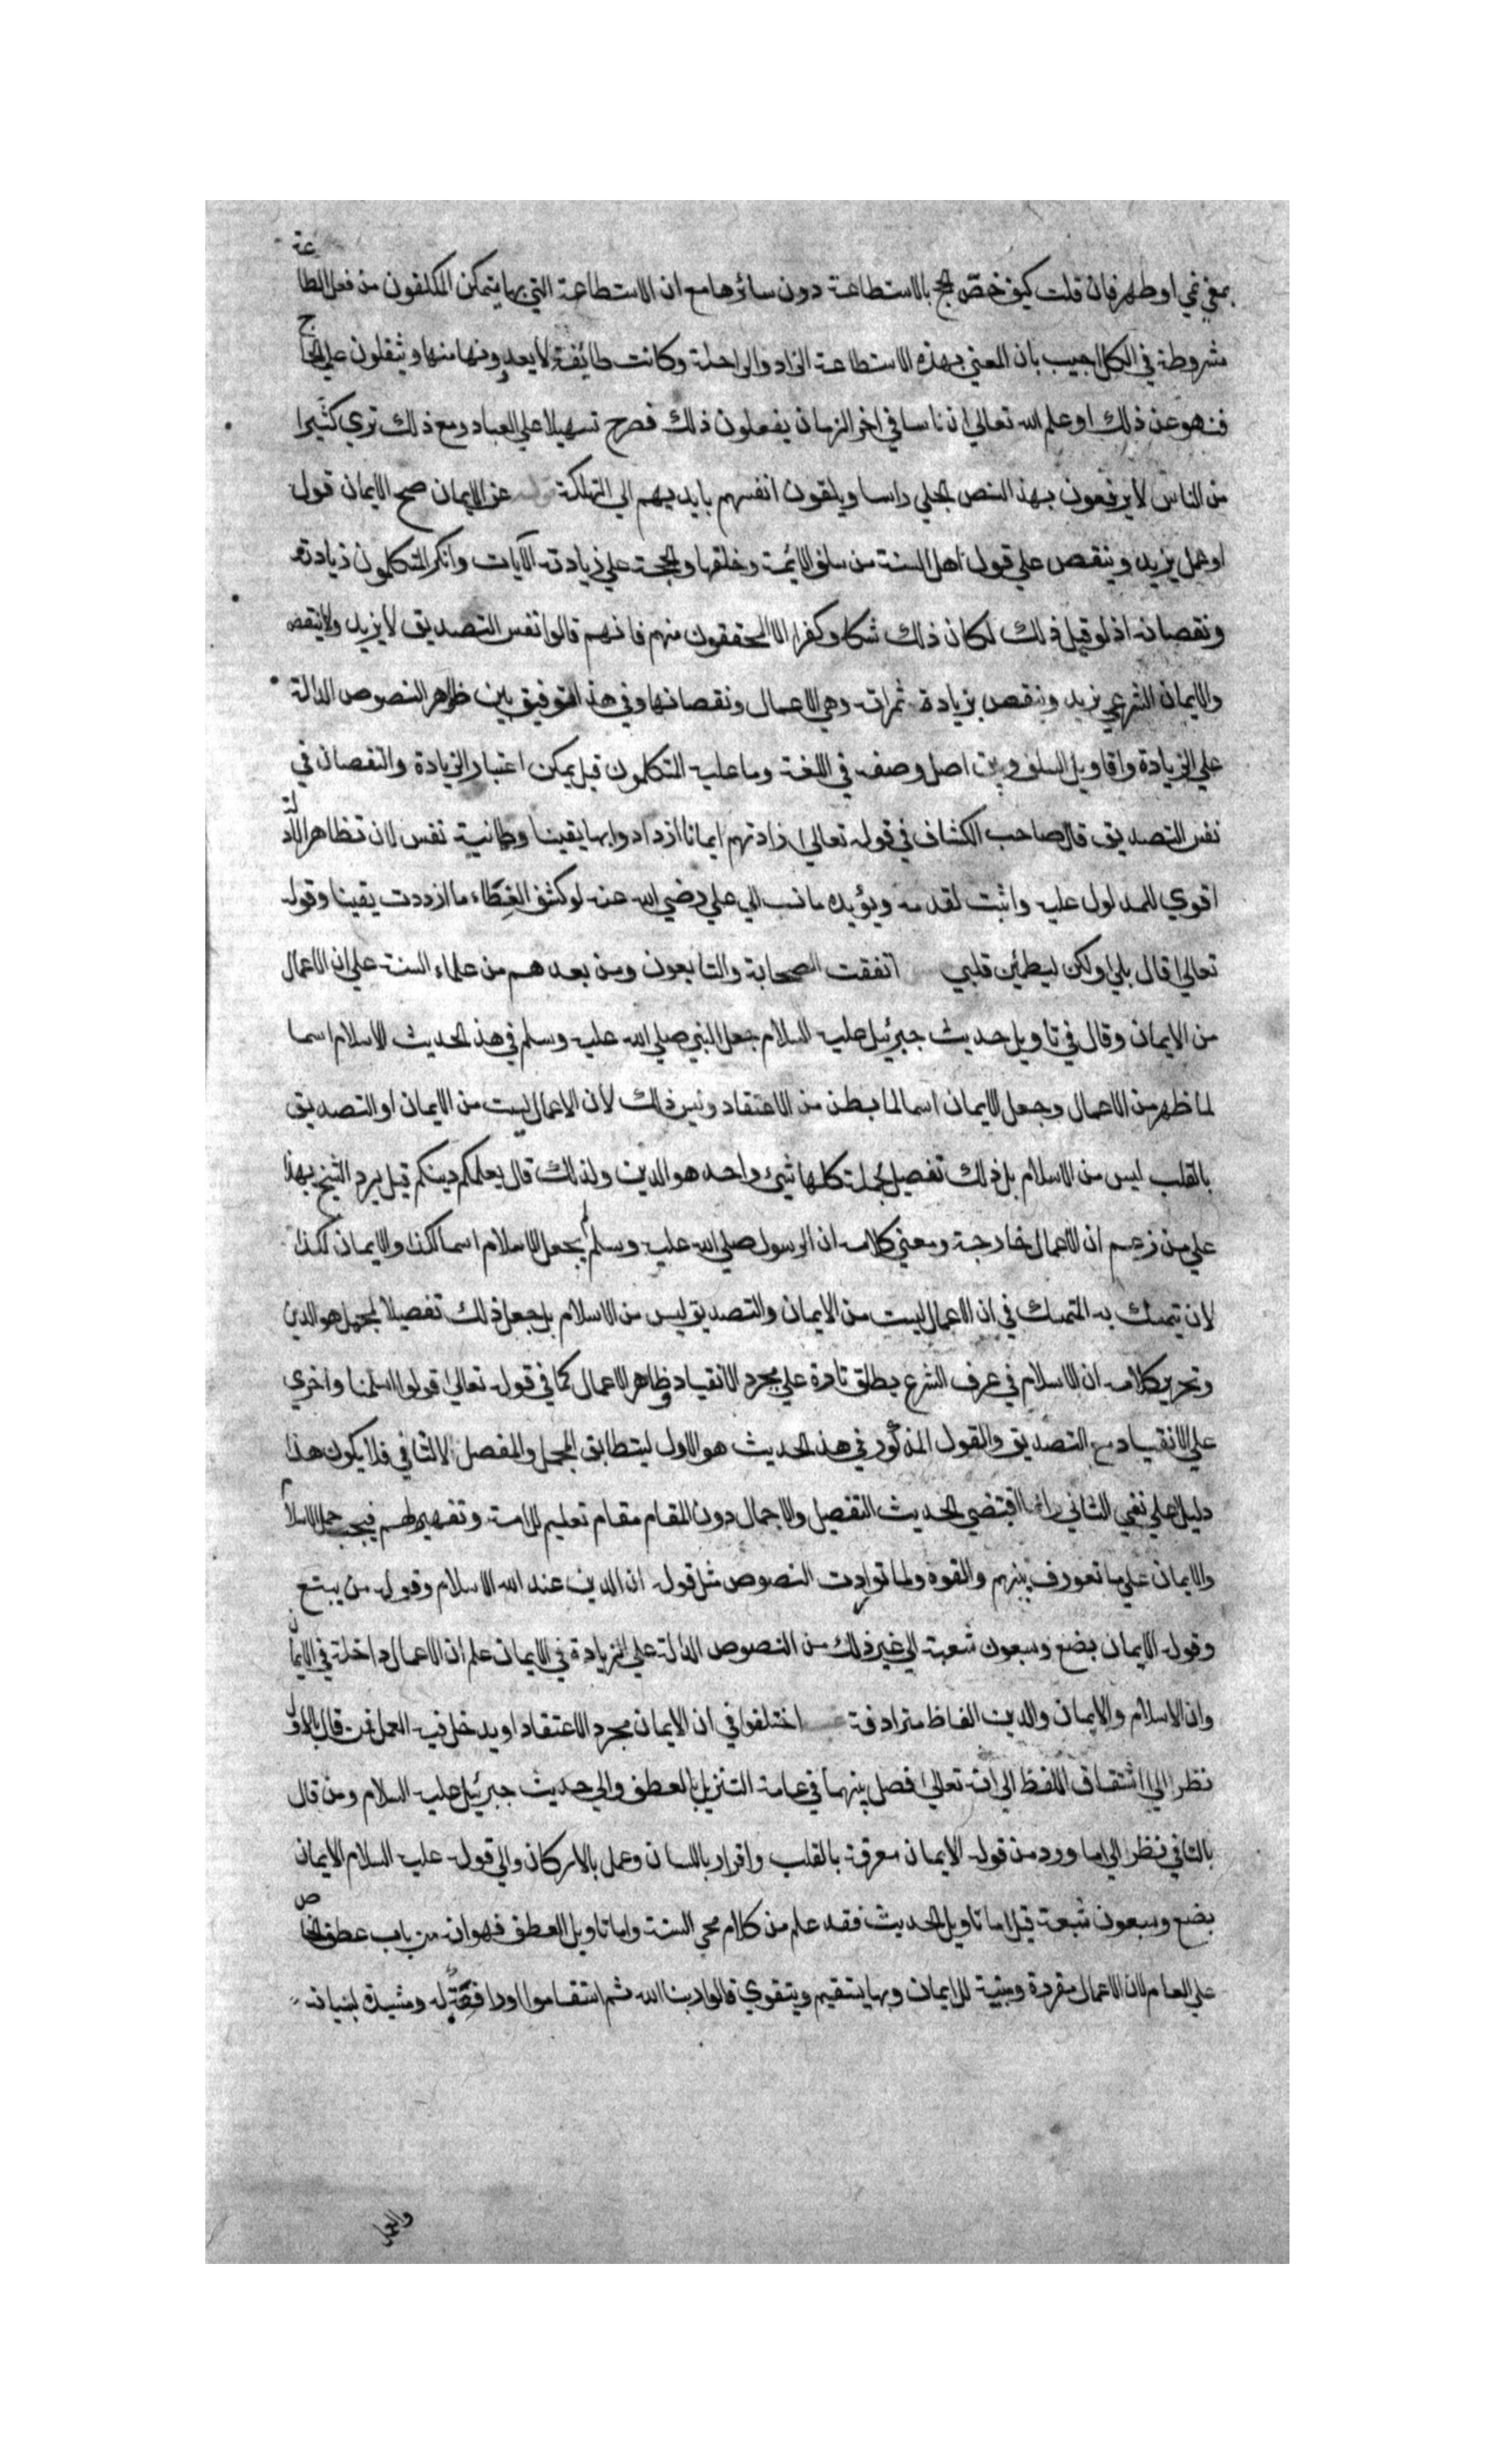 بمعني نمي او طهر فان قلت كيف خص الحج بالاستطاعة دون سائرها مع ان الاستطاعة التي بها يتمكن المكلفون من فعل الطاعة
مشروطة في الكل اجيب بان المعني بهذه الاستطاعة الزاد والراحلة وكانت طائفة لا يعدونها منها ويثقلون علي الحاج
فنهو عن ذلك او علم الله تعالي ان ناسا في اخر الزمان يفعلون ذلك فصرح تسهيلا علي العباد ومع ذلك تري كثيرا
من الناس لا يرفعون بهذا النص الجلي راسا ويلقون انفسهم بايديهم الي التهلكة عن الايمان صح الايمان قول
او عمل يزيد وينقص علي قول اهل السنة من سلف الائمة وخلفها والحجة علي زيادته الآيات وانكر المتكلمون زيادته
ونقصانه اذ لو قيل ذلك لكان ذلك شكا وكفرا الا المحققون منهم فانهم قالوا نفس التصديق لا يزيد ولا ينقص
والايمان الشرعي يزيد وينقص بزيادة ثمراته وهي الاعمال ونقصانها وفي هذا التوفيق بين ظواهر النصوص الدالة
علي الزيادة واقاويل السلف وبين اصل وصفه في اللغة وما عليه المتكلمون قيل يمكن اعتبار الزيادة والنقصان في
نفس التصديق قال صاحب الكشاف في قوله تعالي زادتهم ايمانا ازدادوا بها يقينا وطمانية نفس لان تظاهر الادلة
اقوي للمدلول عليه واثبت لقدمه ويؤيده ما نسب الي علي رضي الله عنه لو كشف الغطاء ما ازددت يقينا وقوله
تعالي قال بلي ولكن ليطمئن قلبي اتفقت الصحابة والتابعون ومن بعدهم من علماء السنة علي ان الاعمال
من الايمان وقال في تاويل حديث جبرئيل عليه السلام جعل النبي صلي الله عليه وسلم في هذا الحديث الاسلام اسما
لما ظهر من الاعمال وجعل الايمان اسما لما بطن من الاعتقاد وليس ذلك لان الاعمال ليست من الايمان او التصديق
بالقلب ليس من الاسلام بل ذلك تفصيل لجملة كلها شيئ واحد هو الدين ولذلك قال يعلمكم دينكم قيل يرد الشيخ بهذا
علي من زعم ان الاعمال خارجة ومعني كلامه ان الرسول صلي الله عليه وسلم لم يجعل الاسلام اسما لكذا والايمان لكذا
لان يتمسك به المتمسك في ان الاعمال ليست من الايمان والتصديق ليس من الاسلام بل جعل ذلك تفصيلا لمجمل هو الدين
وتحرير كلامه ان الاسلام في عرف الشرع يطلق تارة علي مجرد الانقياد وظاهر الاعمال كما في قوله تعالي قولوا اسلمنا واخري
علي الانقياد مع التصديق والقول المذكور في هذا الحديث هو الاول ليتطابق المجمل والمفصل لا الثاني فلا يكون هذا
دليلا علي نفي الثاني وانما اقتضي الحديث التفصيل والاجمال دون المقام مقام تعليم للامة وتفهيم لهم فيجب حمل الاسلام
والايمان علي ما تعورف بينهم والقوه ولما تواردت النصوص مثل قوله ان الدين عند الله الاسلام وقوله من يبتغ
وقوله الايمان بضع وسبعون شعبة الي غير ذلك من النصوص الدالة علي الزيادة في الايمان علم ان الاعمال داخلة في الايمان
وان الاسلام والايمان والدين الفاظ مترادفة اختلفوا في ان الايمان مجرد الاعتقاد او يدخل فيه العمل فمن قال بالاول
نظر الي اشتقاق اللفظ الي انه تعالي فصل بينهما في عامة التنزيل بالعطف والي حديث جبرئيل عليه السلام ومن قال
بالثاني نظر الي ما ورد من قوله الايمان معرفة بالقلب واقرار باللسان وعمل بالاركان والي قوله عليه السلام الايمان
بضع وسبعون شعبة قيل اما تاويل الحديث فقد علم من كلام محي السنة واما تاويل العطف فهو انه من باب عطف الخاص
علي العام لان الاعمال مقررة ومبينة للايمان وبها يستقيم ويتقوي قالوا ربنا الله ثم استقاموا او رافعة له ومشيدة لبنيانه
والعمل